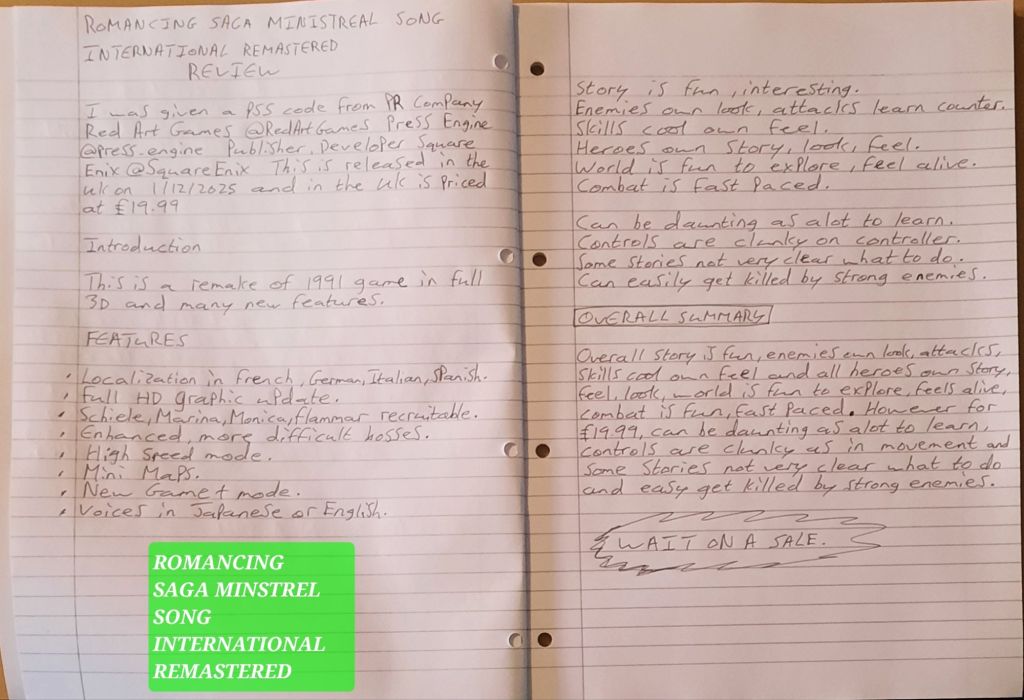 ROMANCING SAGA MINISTREAL SONG
INTERNATIONAL REMASTERED
REVIEW
I was given a PS5 code from PR Company
Red Art Games @RedArtGames Press Engine
@Press.engine Publisher, Developer Square
Enix @SquareEnix This is released in the
uk on 1/12/2025 and in the uk is Priced
at £19.99
Introduction
This is a remake of 1991 game in full
3D and many new features.
FEATURES
• Localization in French, German, Italian, Spanish.
• Full HD graphic update.
• Schiele, Marina, Monica, Flammar recruitable.
• Enhanced, more difficult bosses.
• High Speed mode.
• Mini Maps.
• New Game + mode.
• Voices in Japanese or English.
ROMANCING
SAGA MINSTREL
SONG
INTERNATIONAL
REMASTERED
Story is fun, interesting.
Enemies own look, attacks learn counter.
Skills cool own feel.
Heroes own Story, look, feel.
World is fun to explore, feel alive.
Combat is fast Paced.
Can be daunting as alot to learn.
Controls are clunky on controller.
Some Stories not very clear what to do.
Can easily get killed by strong enemies.
OVERALL SUMMARY
Overall Story is fun, enemies own look, attacks,
skills cool own feel and all heroes own story,
feel, look, world is fun to explore, feels alive,
combat is fun, fast Paced. However for
£19.99, can be daunting as alot to learn,
controls are clunky as in movement and
Some Stories not very clear what to do
and easy get killed by strong enemies.
WAIT ON A SALE.